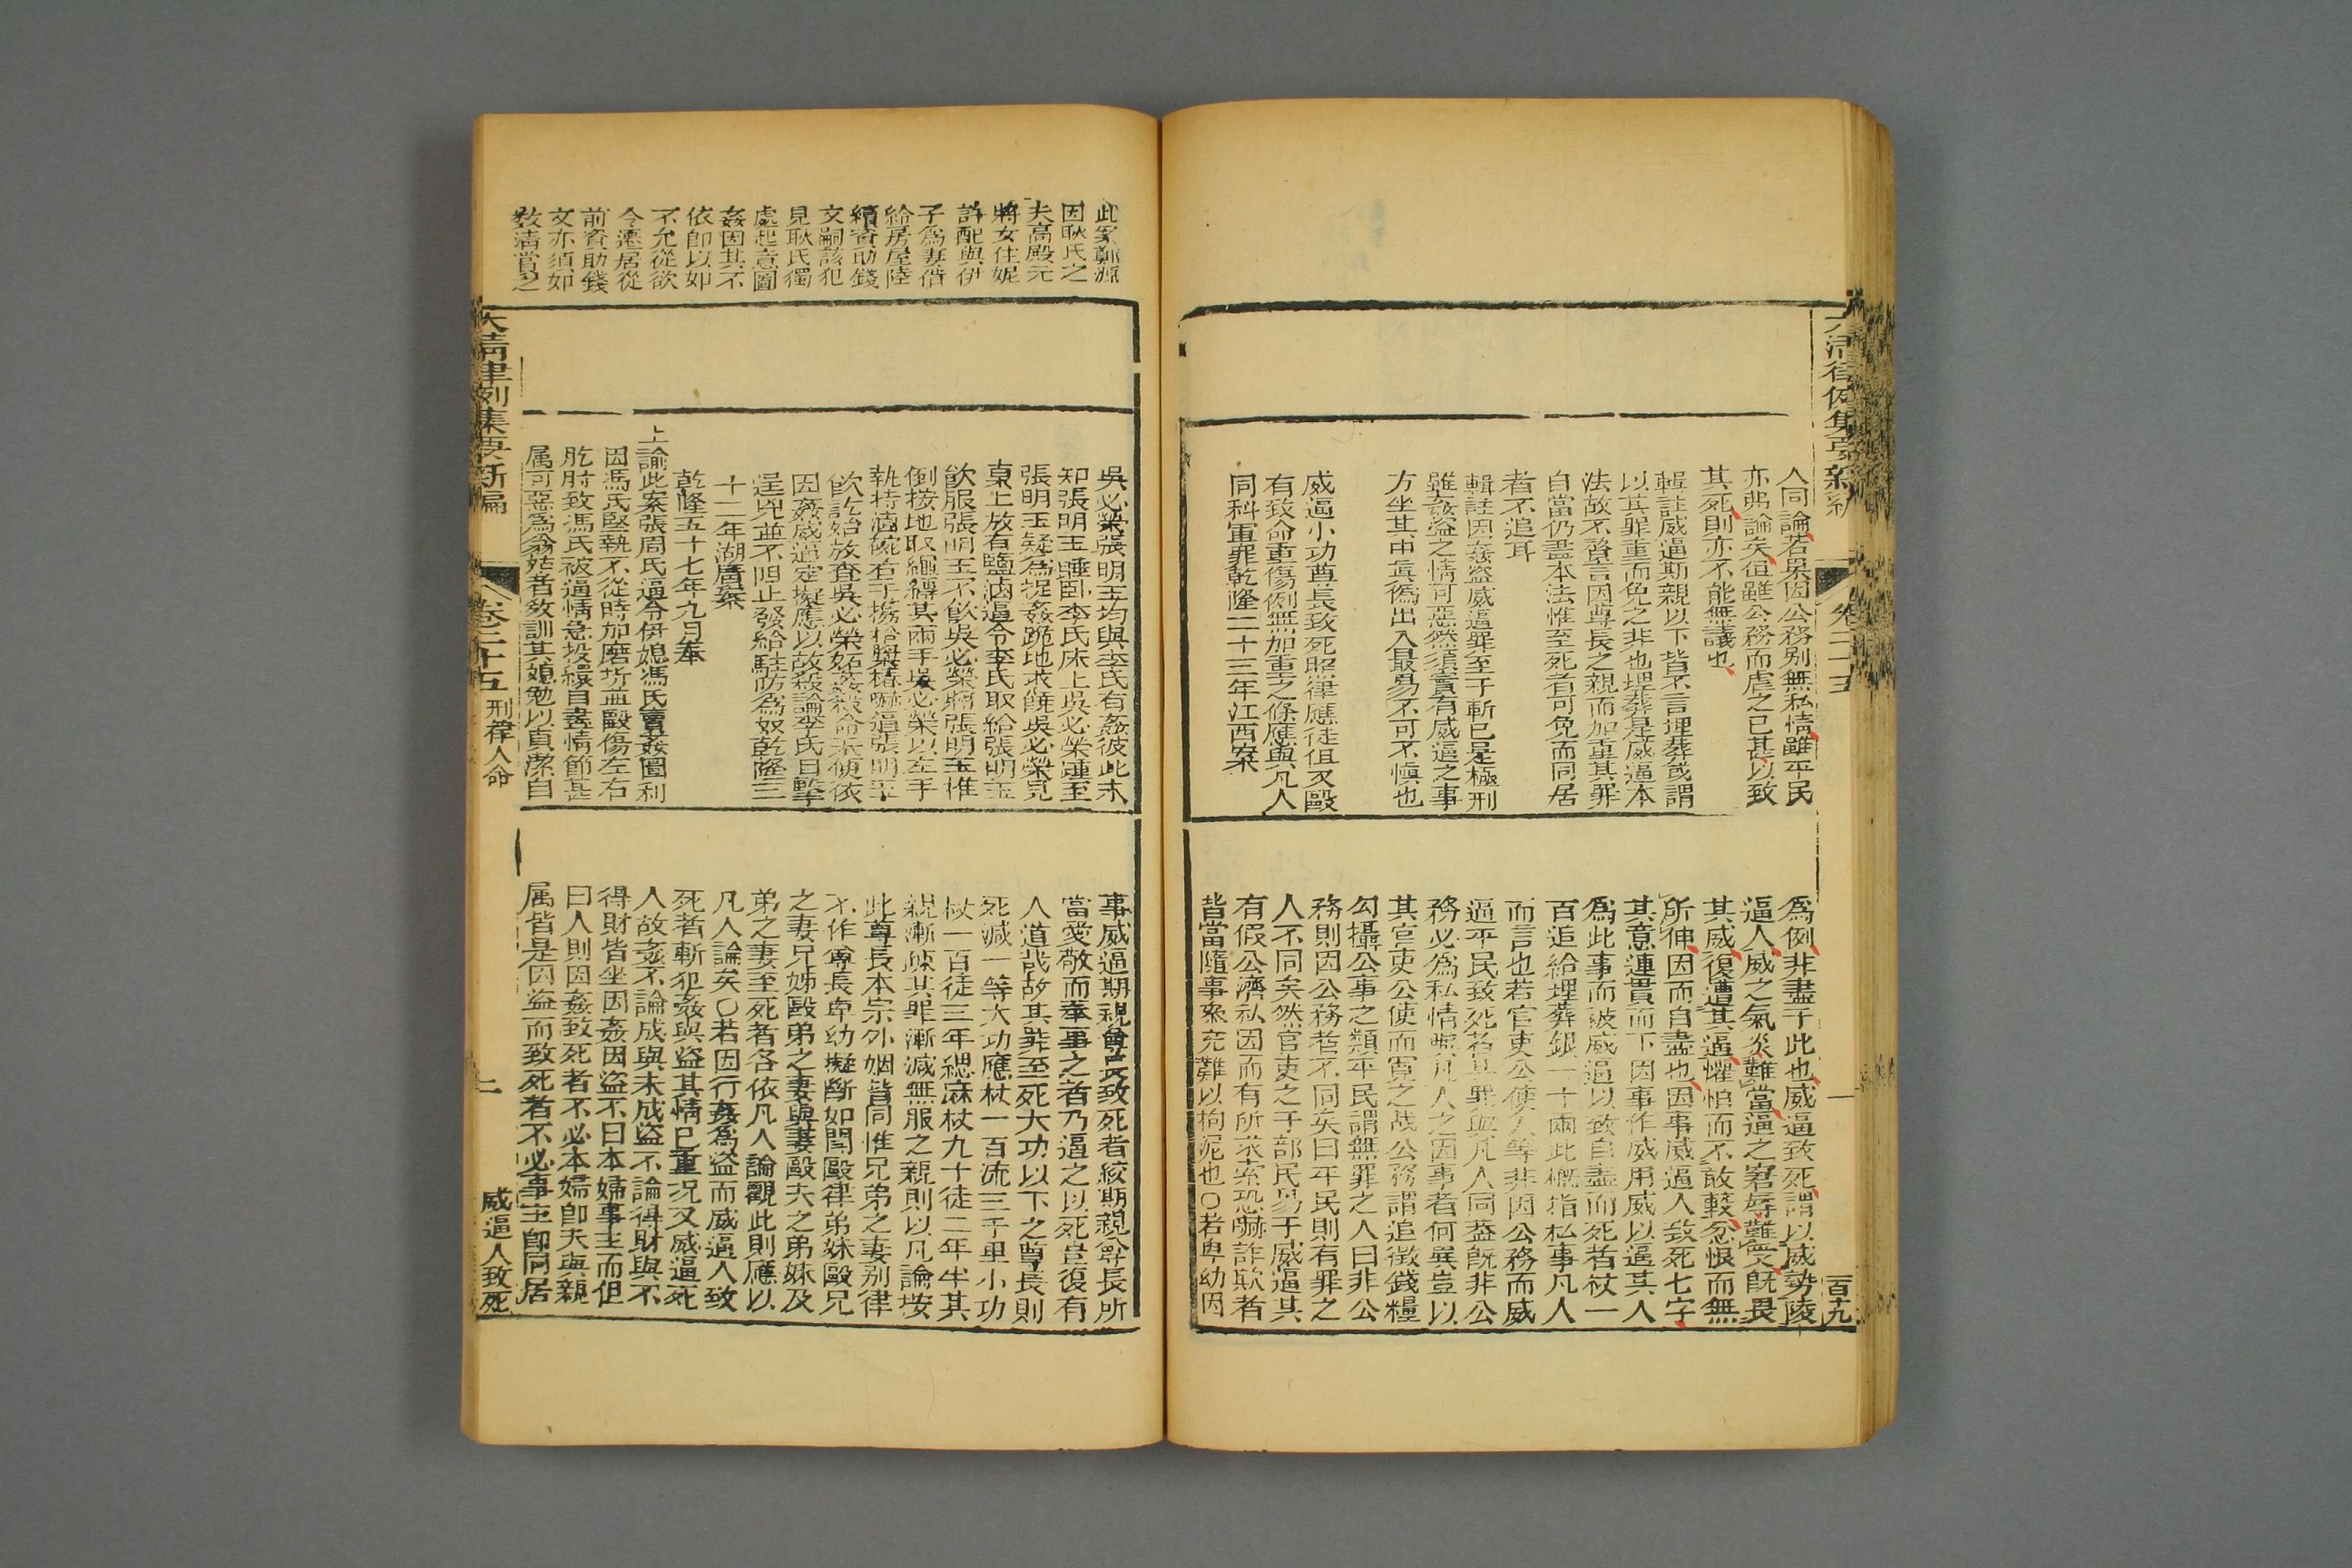 人同論若果因公務别無私情雖平民
亦弗論矣但雖公務而虐之已甚以致
其死則亦不能無議也
輯註威逼斯親以下皆不言埋葬或謂
以其罪重而免之非也埋葬是威逼本
法故不該言因尊長之親而加重其罪
自當仍盡本法惟至死者可免而同居
者不追耳
輯註因姦盗威逼罪至于斬已是極刑
雖姦盗之情可惡然須實有威逼之事
方坐其中真偽出入最易不可不愼也
威逼小功尊長致死照律應徒但又毆
有致命重傷例無加重之條應與凡人
同科軍罪乾隆二十三年江西案
為例非盡于此也威逼致死謂以威勢陵
逼人威之氣炎難當逼之窘辱難受旣畏
其威復遭其逼懼怕而不敢較忿恨而無
所伸因而自盡也因事威逼人致死七字
其意連貫而下因事作威用威以逼其人
為此事而被威逼以致自盡而死者杖一
百追給埋葬銀一十兩此概指私事凡人
而言也若官吏公使人等非因公務而威
逼平民致死者其罪與凡人同葢旣非公
務必為私情與凡人之因事者何異豈以
其官吏公使而寛之哉公務謂追徴錢糧
勾攝公事之類平民謂無罪之人曰非公
務則因公務者不同矣曰平民則有罪之
人不同矣然官吏之于部民易于威逼其
有假公濟私因而有所求索恐嚇詐欺者
皆當隨事叅究難以拘泥也○若卑幼因
大清律例集要新編
卷二十五
一
百十九
此案鄭源
因耿氏之
夫高殿元
將女住妮
許配與伊
子爲妻借
給房屋陸
續資助錢
文嗣該犯
見耿氏獨
處起意圖
姦因其不
依卽以如
不允從欲
令遷居從
前資助錢
文亦須如
数清嘗之
吳必榮張明玉均與李氏有姦彼此未
知張明玉睡卧李氏床上吳必榮踵至
張明玉疑為捉姦跪地求饒吳必榮見
棹上放有鹽滷逼令李氏取給張明玉
飮服張明玉不飮吳必榮將張明玉推
倒按地取繩縛其兩手吳必榮以左手
執持滷碗右手撥捨槳樁嚇逼張明玉
飮訖始放查吳必榮妬姦殺命未便依
因姦威逼定擬應以故殺論李氏目擊
逞兇並不阻止發給駐防為奴乾隆三
十二年湖廣案
乾隆五十七年九月奉
上諭此案張周氏逼令伊媳馮氏賣姦圖利
因馮氏堅執不從時加磨折並毆傷左右
肐肘致馮氏被逼情急投繯自盡情節甚
屬可惡為翁姑者敎訓其媳勉以貞潔自
事威逼期親尊長致死者絞期親尊長所
當愛敬而奉事之者乃逼之以死豈復有
人道哉故其罪至死大功以下之尊長則
死減一等大功應杖一百流三千里小功
杖一百徒三年緦麻杖九十徒二年半其
親漸疎其罪漸減無服之親則以凡論按
此尊長本宗外姻皆同惟兄弟之妻别律
不作尊長卑幼擬斷如閗毆律弟妹毆兄
之妻兄姊毆弟之妻與妻毆夫之弟妹及
弟之妻至死者各依凡人論觀此則應以
凡人論矣○若因行姦為盗而威逼人致
死者斬犯姦與盗其情已重况又威逼死
人故姦不論成與未成盗不論得財與不
得財皆坐因姦因盗不曰本婦事主而但
曰人則因姦致死者不必本婦卽夫與親
属皆是因盗而致死者不必事主卽同居
大清律例集要新編
卷二十五 刑律人命
二
威逼人致死